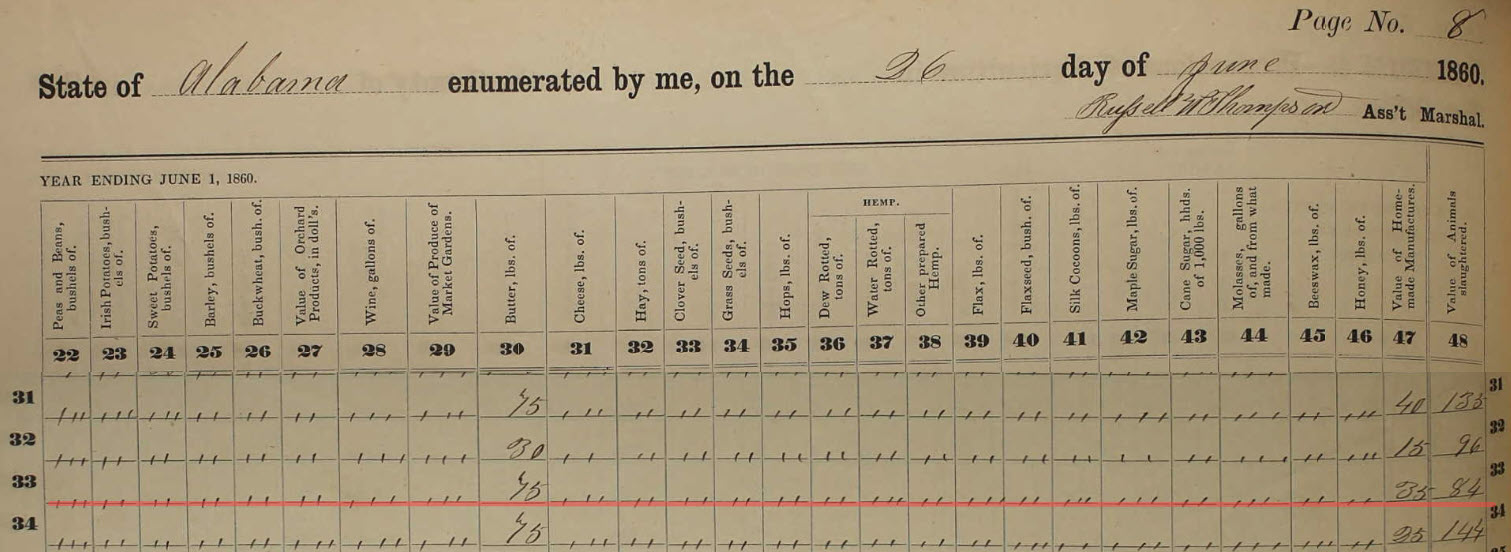 Page No. 8
State of Alabama enumerated by me, on the 26 day of June 1860.
Russell W Thompson Ass't Marshal.
YEAR ENDING JUNE 1, 1860.
Peas and Beans, bushels of.
Irish Potatoes, bushels of.
Sweet Potatoes, bushels of.
Barley, bushels of.
Buckwheat, bush. of.
Value of Orchard Products, in doll's.
Wine, gallons of.
Value of Produce of Market Gardens.
Butter, lbs. of.
Cheese, lbs. of.
Hay, tons of.
Clover Seed, bushels of.
Grass Seeds, bushels of.
Hops, lbs. of.
HEMP.
Dew Rotted, tons of.
Water Rotted, tons of.
Other prepared Hemp.
Flax, lbs. of.
Flaxseed, bush. of.
Silk Cocoons, lbs. of.
Maple Sugar, lbs. of.
Cane Sugar, hhds. of 1,000 lbs.
Molasses, gallons of, and from what made.
Beeswax, lbs. of.
Honey, lbs. of.
Value of Home-made Manufactures.
Value of Animals slaughtered.
22 23 24 25 26 27 28 29 30 31 32 33 34 35 36 37 38 39 40 41 42 43 44 45 46 47 48
31 75 40 135 31
32 30 15 96 32
33 75 35 84 33
34 75 25 144 34